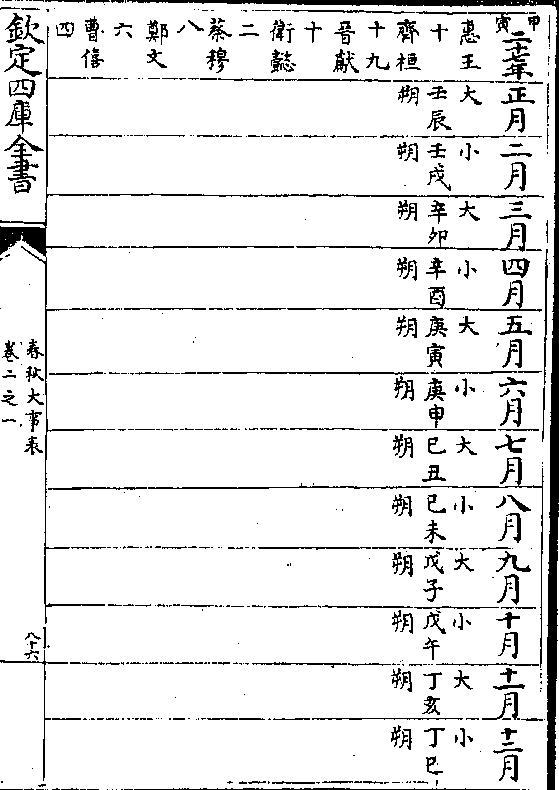 甲寅
二十七年
惠王
十
齊桓
十九
晉獻
十
衛懿
二
蔡穆
八
鄭文
六
曹僖
四
正月
大
壬辰
朔
二月
小
壬戌
朔
三月
大
辛卯
朔
四月
小
辛酉
朔
五月
大
庚寅
朔
六月
小
庚申
朔
七月
大
己丑
朔
八月
小
己未
朔
九月
大
戊子
朔
十月
小
戊午
朔
十一月
大
丁亥
朔
十二月
小
丁巳
朔
欽定四庫全書
春秋大事表
卷二之一
八十六